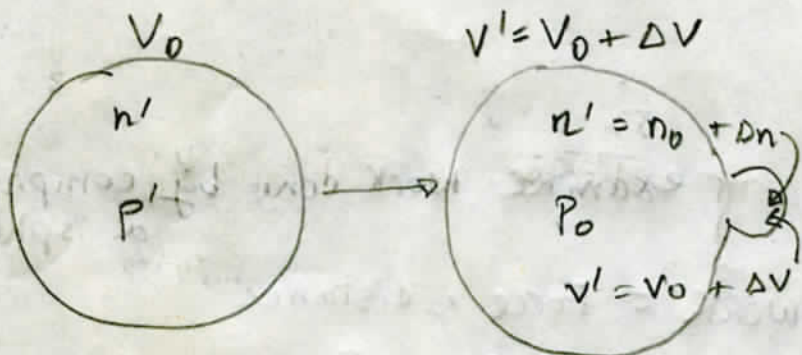 V₀
n'
P'
V' = V₀ + ΔV
n' = n₀ + Δn
P₀
V' = V₀ + ΔV